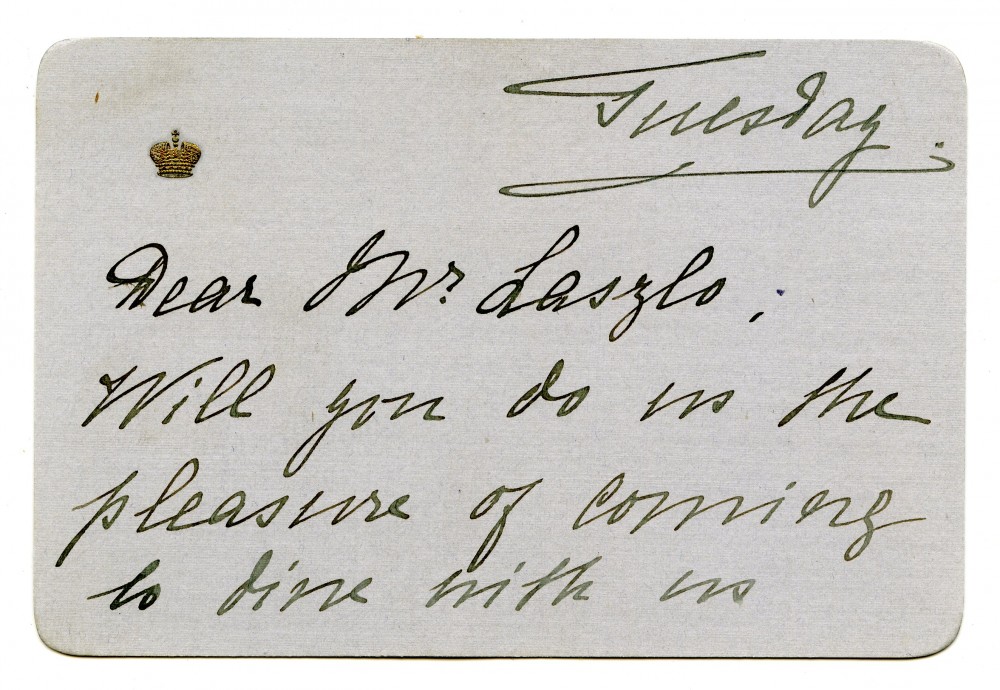 Tuesday.
Dear Mr. Laszlo,
Will you do us the
pleasure of coming
to dine with us